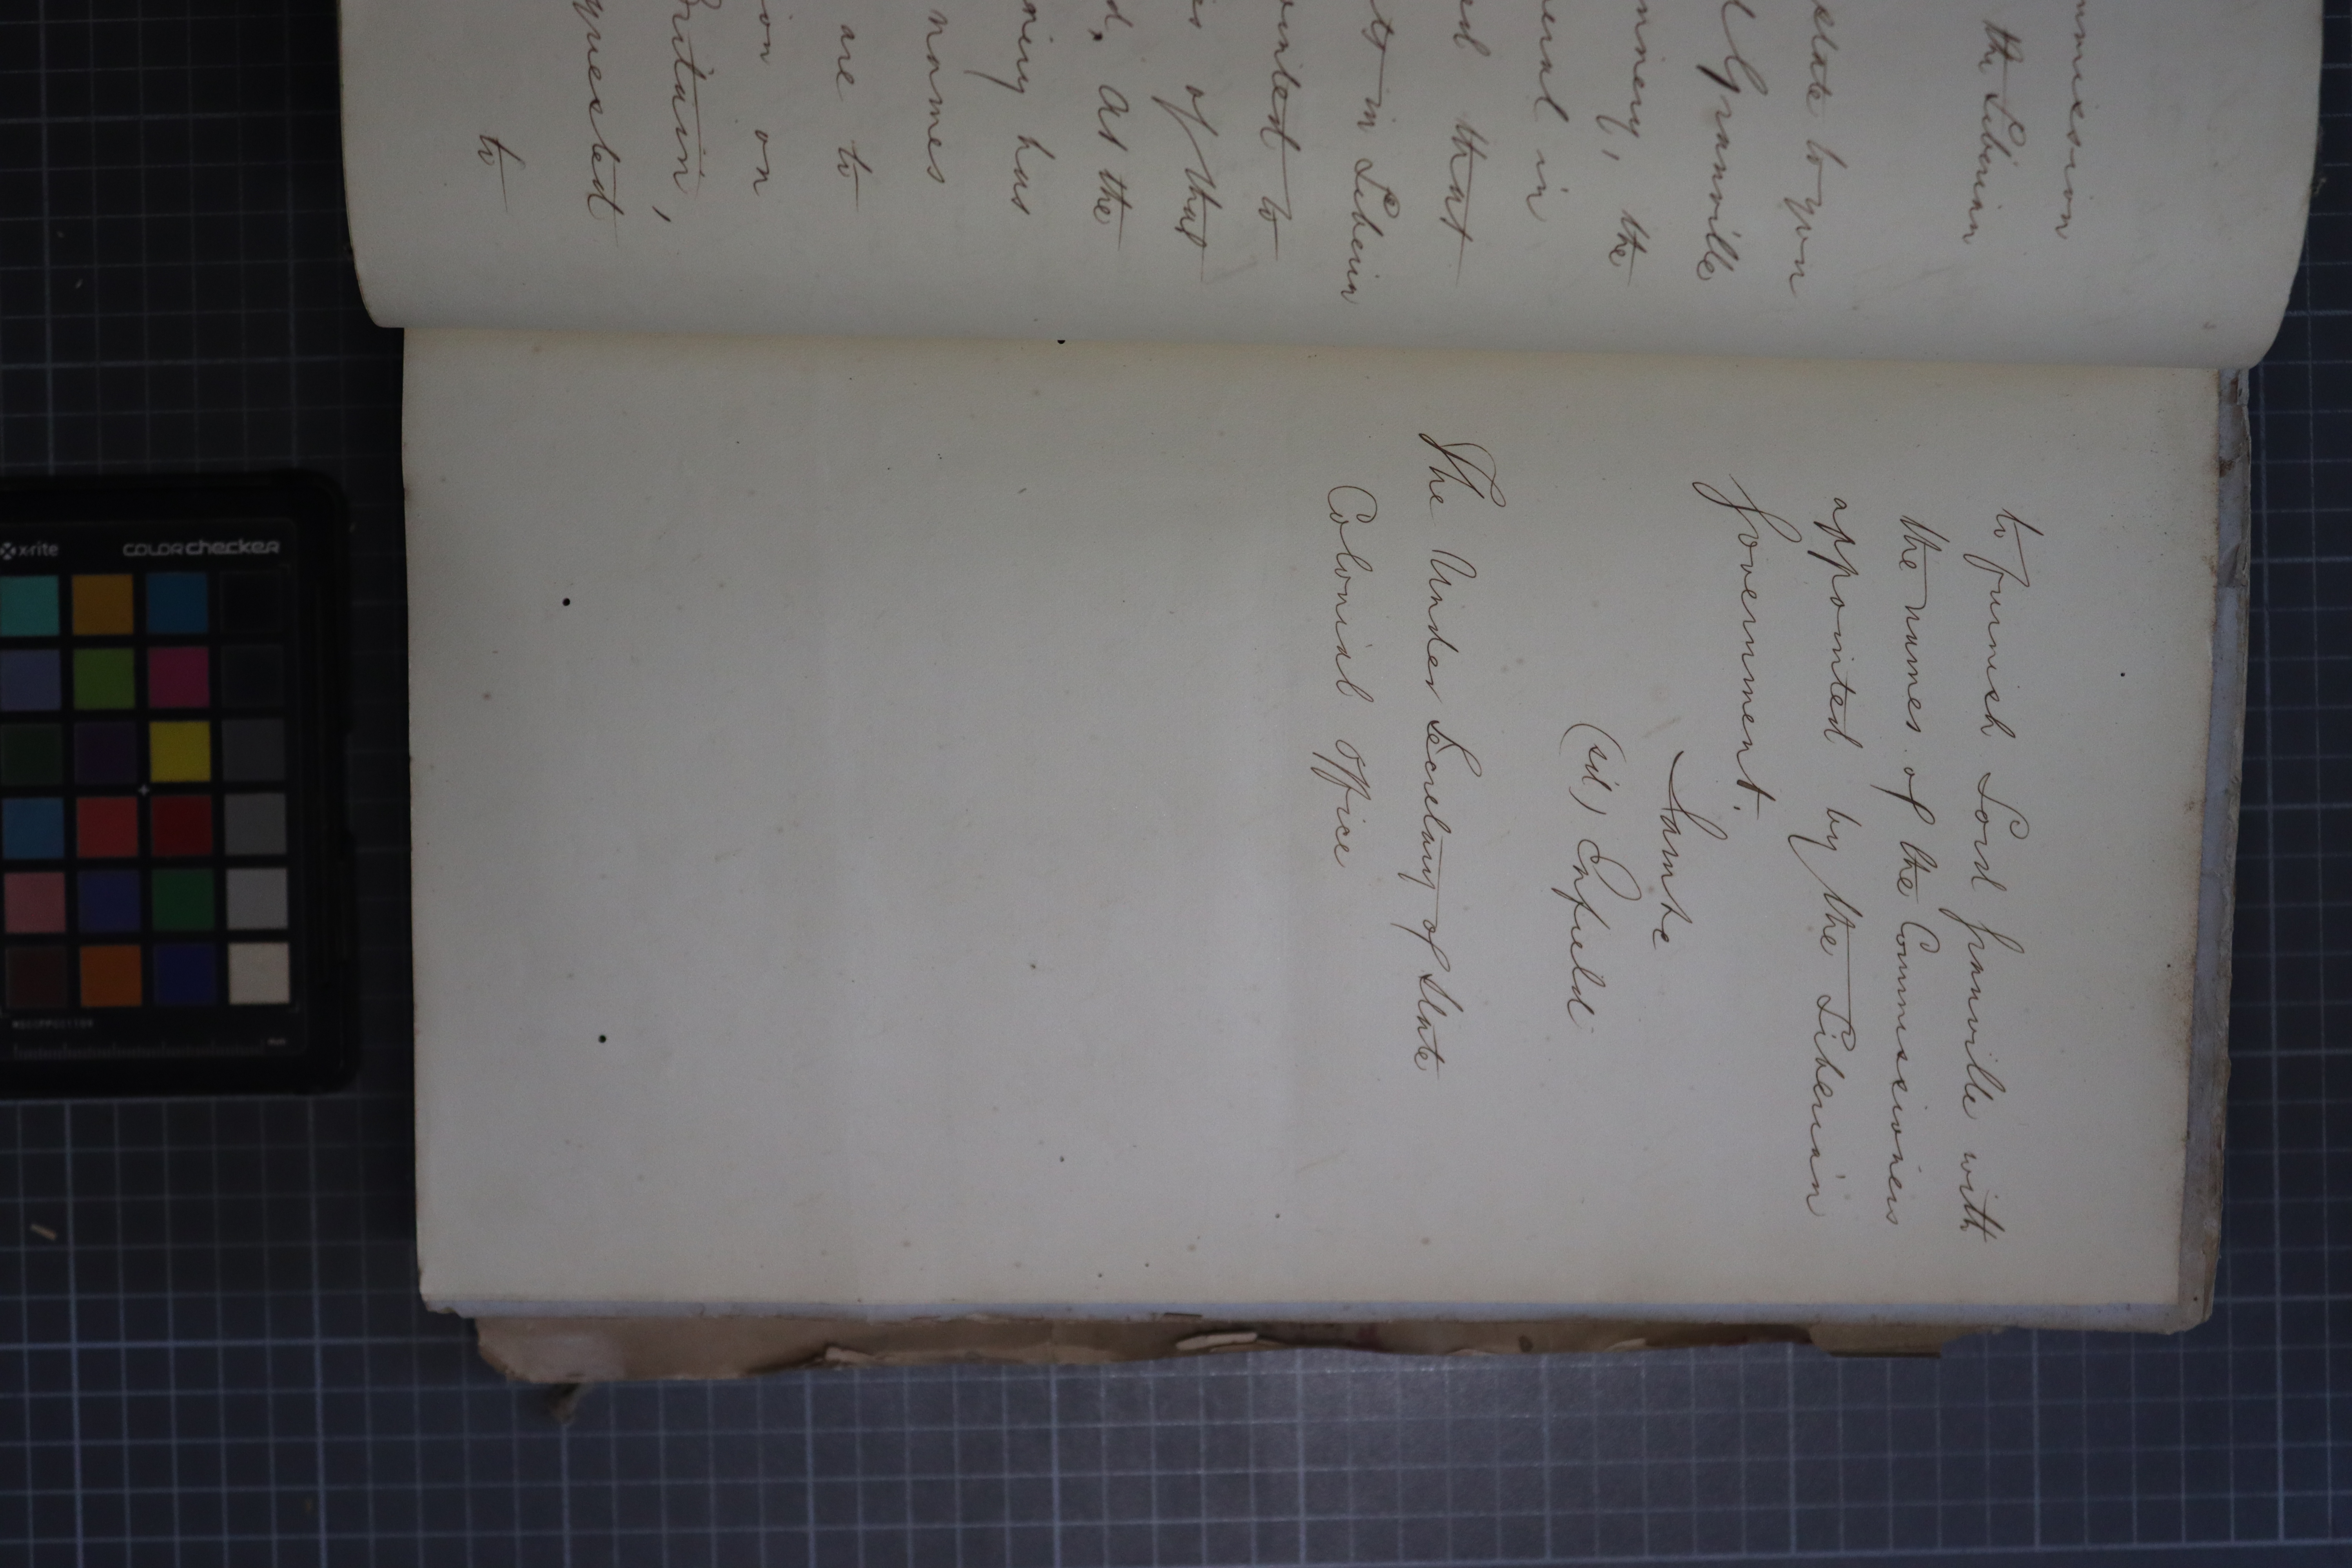 mmission
the Liberian
state to you
l Granville
nnery, the
ered in
ed that
ts in Liberia
ointed to
is of that
d. As the
nery has
names
are to
ion on
Britain,
quested
to
to furnish Lord Granville with
the names of the Commissioners
appointed by the Liberian
Government.
I am &c
(sd) Enfield
The Under Secretary of State
Colonial Office
x-rite
colorchecker